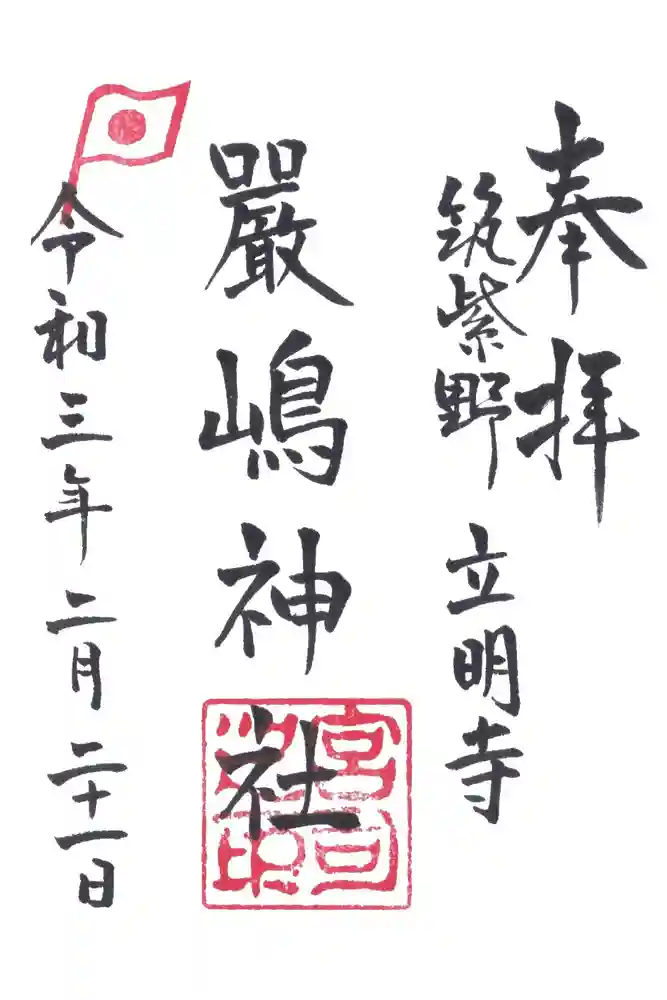 奉拝
筑紫野 立明寺
嚴嶋神社
宮司之印
令和三年二月二十一日